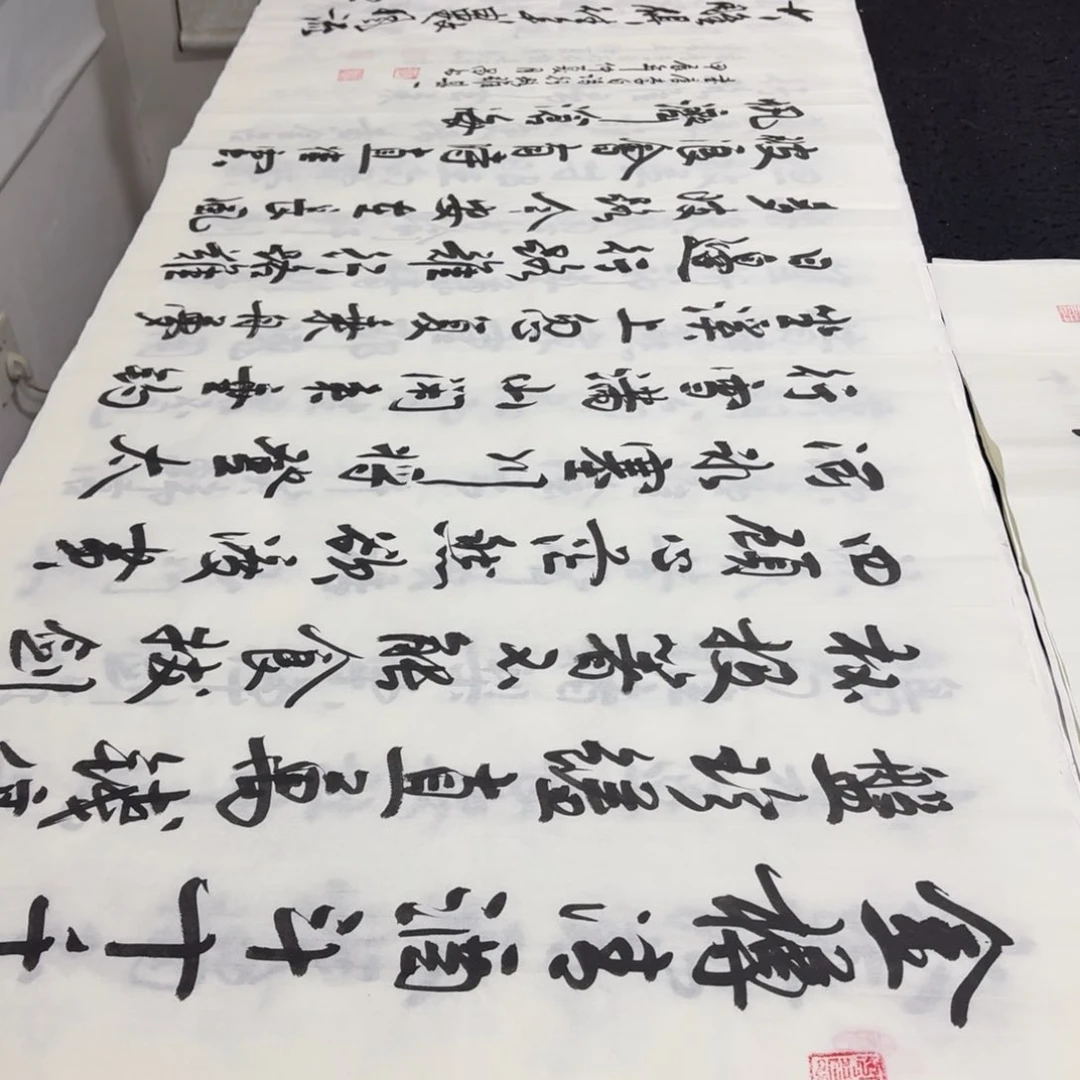 金樽清酒斗十千
盤珍羞直萬錢停
杯投箸不能食拔劍
四顧心茫然欲渡黄
河冰塞川將登太
行雪滿山閑來垂釣
坐溪上忽復乘舟夢
日邊行路難行路難
多歧路今安在長風
破浪會有時直掛雲
帆濟滄海
李白詩行路難其一
甲辰年仲夏月